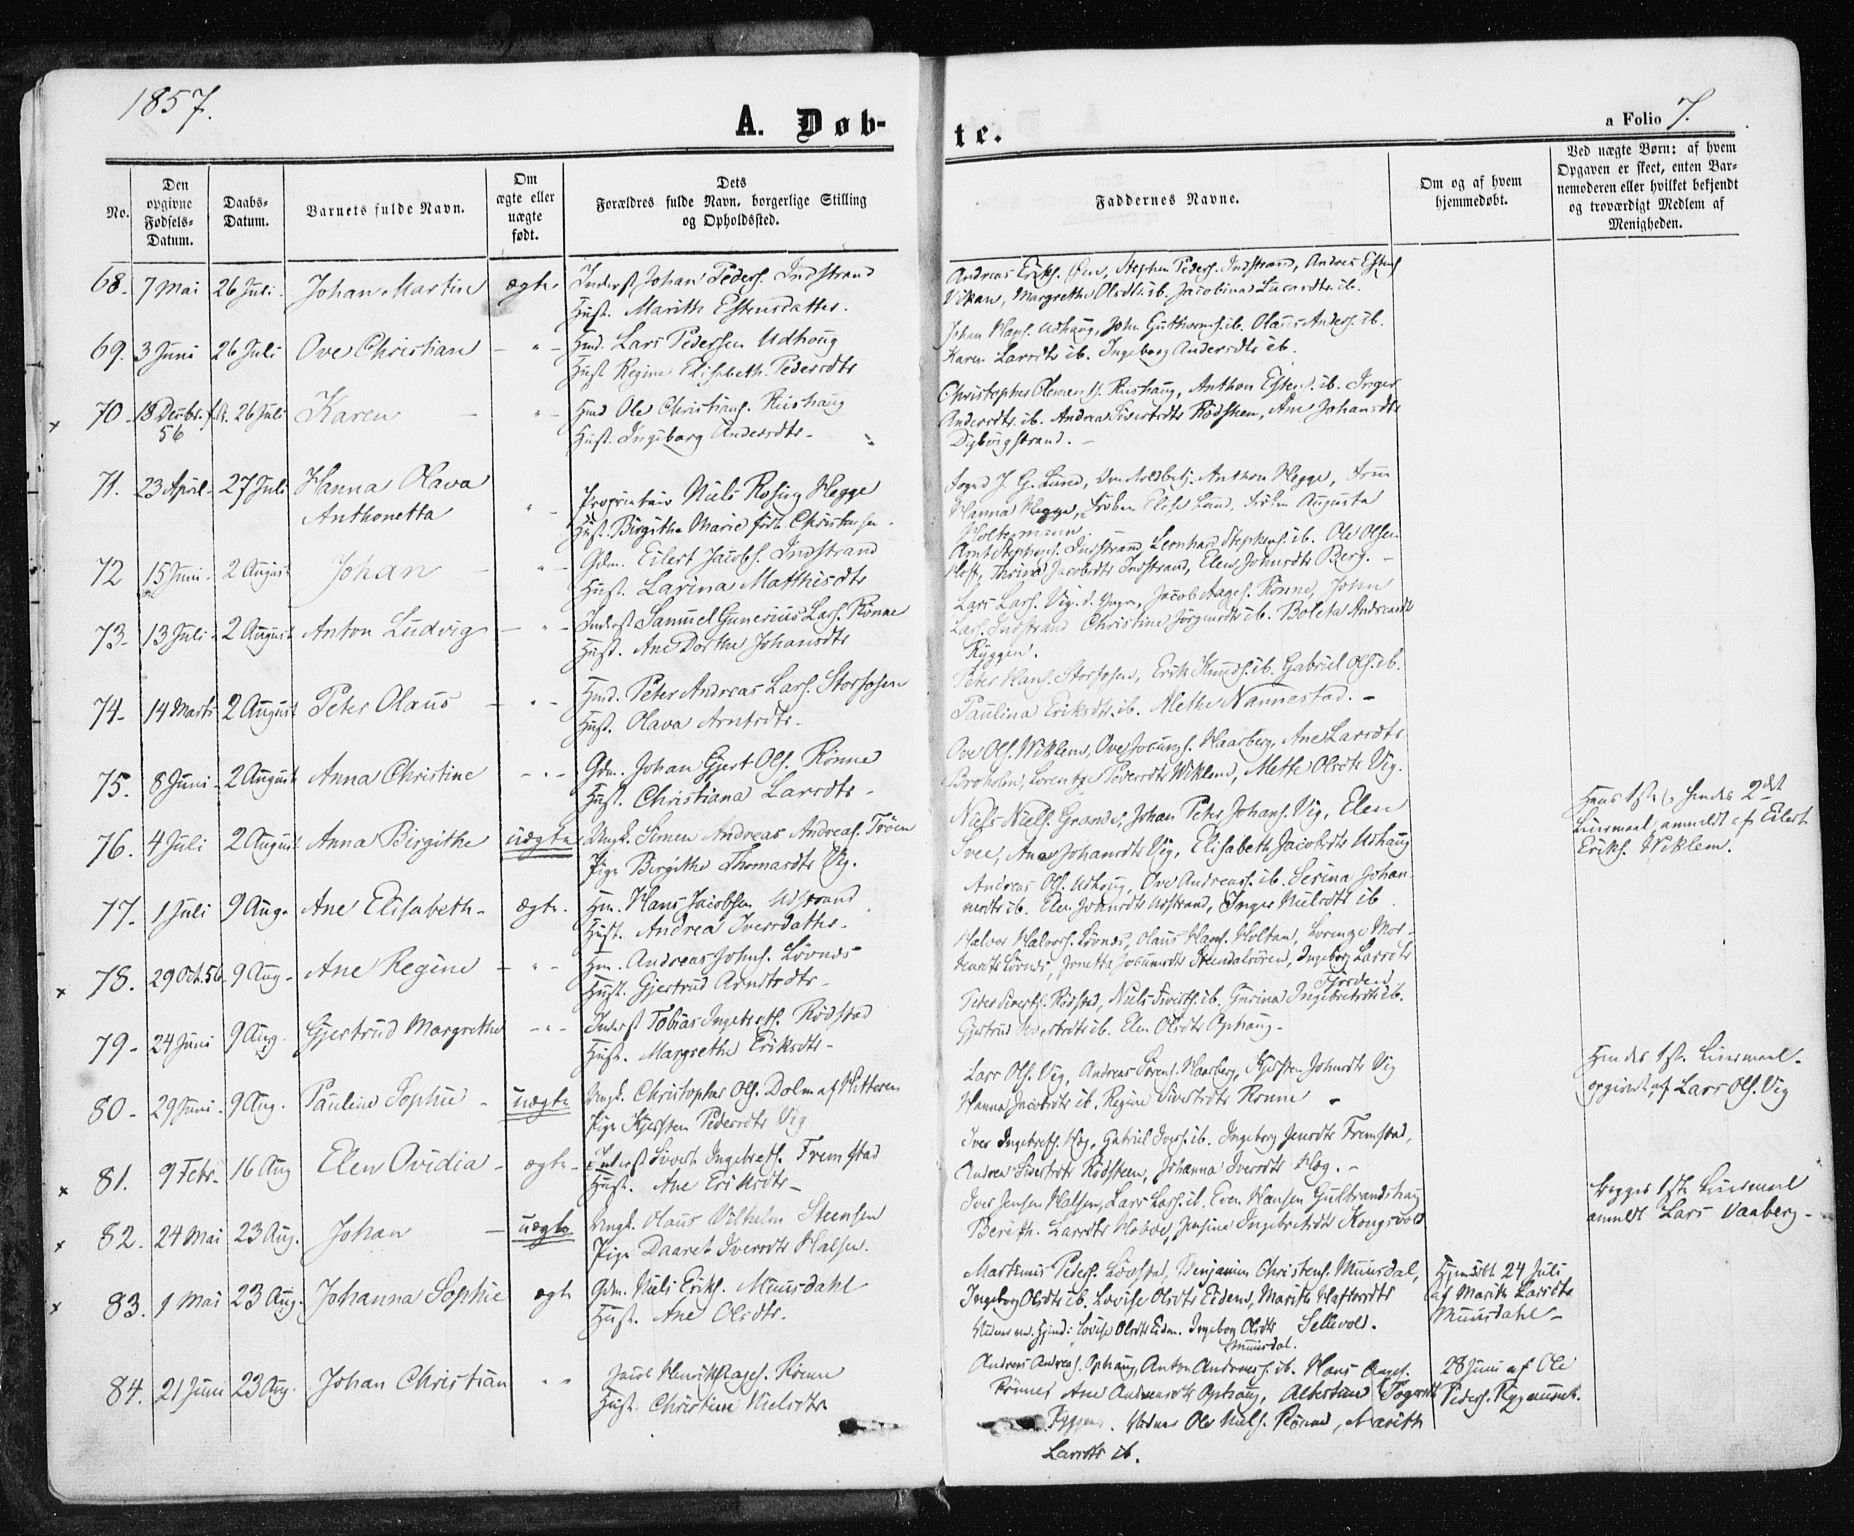 1857.
A. Døb-
te.
a Folio 7.
No.
Den opgivne Fødsels-Datum.
Daabs-Datum.
Barnets fulde Navn.
Om ægte eller uægte født.
Dets Forældres fulde Navn, borgerlige Stilling og Opholdssted.
Faddernes Navne.
Om og af hvem hjemmedøbt.
Ved uægte Børn: af hvem Opgaven er skeet, enten Barnemoderen eller hvilket bekjendt og troværdigt Medlem af Menigheden.
68. 7 Mai 26 Juli Johan Martin ægte Inderst Johan Peders. Indstrand
Hust. Marith Estensdatter.
Andreas Eriks. Øen, Stephen Peders. Indstrand, Andreas Estens.
Vikan, Margrethe Olsdtr ib. Jacobina Larsdtr ib.
69. 3 Juni 26 Juli Ove Christian - " - Hmd. Lars Pedersen Udhoug
Hust. Regine Elisabeth Pedersdtr
Johan Hans. Udhaug, John Guthorms. ib. Olaus Anders. ib.
Karen Larsdtr ib. Ingeborg Andersdtr ib.
70. 18 Decbr. 56 26 Juli Karen - " - Hmd Ole Christians. Riishaug
Hust. Ingeborg Andersdtr.
Christopher Clemens. Riishaug, Anthon Estens. ib. Inger
Andersdtr. ib. Andrea Sivertsdtr Rødsteen, Ane Johansdtr
Dybvigstrand.
71. 23 April 27 Juli Hanna Olava
Anthonetta " Proprietair Niels Rosing Hegge
Hust. Birgithe Marie født Christensen.
Foged J. G. Lund, Anthon Hegge, Frue
Hanna Hegge, Frøken Elise Lund, Frøken Augusta
Holtermann
72 15 Juni 2 August Johan - " - Gdm. Eilert Jacobs. Indstrand
Hust. Larina Matthisdtr
Arnt Stephens. Indstrand, Leonhard Stephens. ib. Ole Olsen
Hoff, Thrine Jacobsdtr Indstrand, Elen Johnsdtr Berg.
73. 13 Juli 2 August Anton Ludvig - " - Inderst Samuel Gunerius Lars. Rønne
Hust. Ane Dorthe Johansdtr
Lars Lars. Vig d. Yngr., Jacob Aages. Rønne, John
Lars. Indstrand Christine Jørgensdtr ib. Boleta Andreasdtr
Ryggen.
74. 14 Marts 2 August Peter Olaus - " - Hmd. Peter Andreas Lars. Storfosen
Hust. Olava Arntsdtr.
Peter Hans. Storfosen, Erik Knuds. ib. Gabriel Ols. ib.
Paulina Eriksdtr. ib. Mette Nannestad.
75. 8 Juni 2 August Anna Christine - " - Gdm. Johan Gjert Ols. Rønne
Hust. Christiana Larsdtr
Ove Ols. Wiklem, Ove Jocums. Haarberg, Ane Larsdtr
Broholm, Lorentze Pedersdtr Wiklem, Mette Olsdtr Vig.
76. 4 Juli 2 August Anna Birgithe uægte Ungk. Simen Andreas Andreas. Trøen
Pige Birgithe Thomasdtr Vig.
Niels Niels. Grande, Johan Peter Johans. Vig, Elen
Svee, Ane Johansdtr Vig, Elisabeth Jacobsdtr Udhaug
Hans 1ste, hendes 2det
Leiermaal, anmeldt af Eilert
Eriks. Wiklem.
77. 1 Juli 9 Aug. Ane Elisabeth ægte. Hm. Hans Jacobsen Udstrand
Hust. Andrea Iversdatter.
Andreas Ols. Udhoug, Ove Andreass. ib. Serina Johan-
nesdtr ib. Elen Johnsdtr Udstrand, Inger Nielsdtr ib
78. 29 Oct. 56 9 Aug. Ane Regine - " - Hm. Andreas Johns. Løvnes
Hust. Gjertrud Arndtsdtr.
Halvor Halvors. Løvnes, Olaus Hans. Holtan, Lorentze Mor-
tensdtr Løvnes, Jonetta Jocumsdtr, Ingeborg Larsdtr
Fjorden
79. 24 Juni 9 Aug. Gjertrud Margrethe - " - Inderst Tobias Ingebrets. Rødstad
Hust. Margrethe Eriksdtr
Peter Siverts. Rødstad, Niels Siverts. ib. Gurina Ingebretsdtr ib.
Gjertrud Sivertsdtr ib. Elen Olsdtr Ophaug.
80. 29 Juni 9 Aug. Pauline Sophie uægte Ungk. Christopher Ols. Dolm af Hitteren
Pige Kjersten Pedersdtr Vig
Lars Ols. Vig, Andreas Sørens. Haarberg, Kjersten Johnsdtr Vig
Hanna Jacobsdtr ib. Regine Sivertsdtr Rønne
Hendes 1ste Leiermaal
opgivet af Lars Ols. Vig
81. 9 Febr. 16 Aug Elen Ovidia ægte Inderst Sivert Ingebrets. Fremstad
Hust. Ane Eriksdtr
Iver Ingebrets. Høg, Gabriel Ivers. ib. Ingeborg Jensdtr Fremstad,
Andrea Sivertsdtr Rødsteen, Johanna Iversdtr Høg.
82. 24 Mai 23 Aug. Johan uægte Ungk. Olaus Vilhelm Steensen
Pige Daaret Iversdtr Halsen.
Iver Jensen Halsen, Lars Lars. ib. Even Hansen Guldbrandshaug
Berith Larsdtr, Jensine Ingebretsdtr Kongsvold
begges 1ste Leiermaal
anmeldt Lars Vaaberg
83. 1 Mai 23 Aug. Johanna Sophie ægte Gdm. Niels Eriks. Muusdahl
Hust. Ane Olsdtr.
Martinus Peders. Løvstad, Benjamin Christens. Muusdal,
Ingeborg Olsdtr ib. Lovise Olsdtr Eidem, Marith Haftorsdtr
Sellevold.
Lovise Olsdtr Eidem. Ingeborg Olsdtr
Muusdal.
Hjemdøbt 24 Juli
af Marith Larsdtr
Muusdahl
84. 21 Juni 23 Aug. Johan Christian " " Jacob Henrik Aages. Rønne
Hust. Christine Nielsdtr
Andreas Andreas. Ophaug, Anton Andreas. ib. Hans Aages.
Rønne Ane Andreasdtr Ophaug, Albertine
Ole Niels. Rønne, Marith
Larsdtr ib.
28 Juni af Ole
Peders.